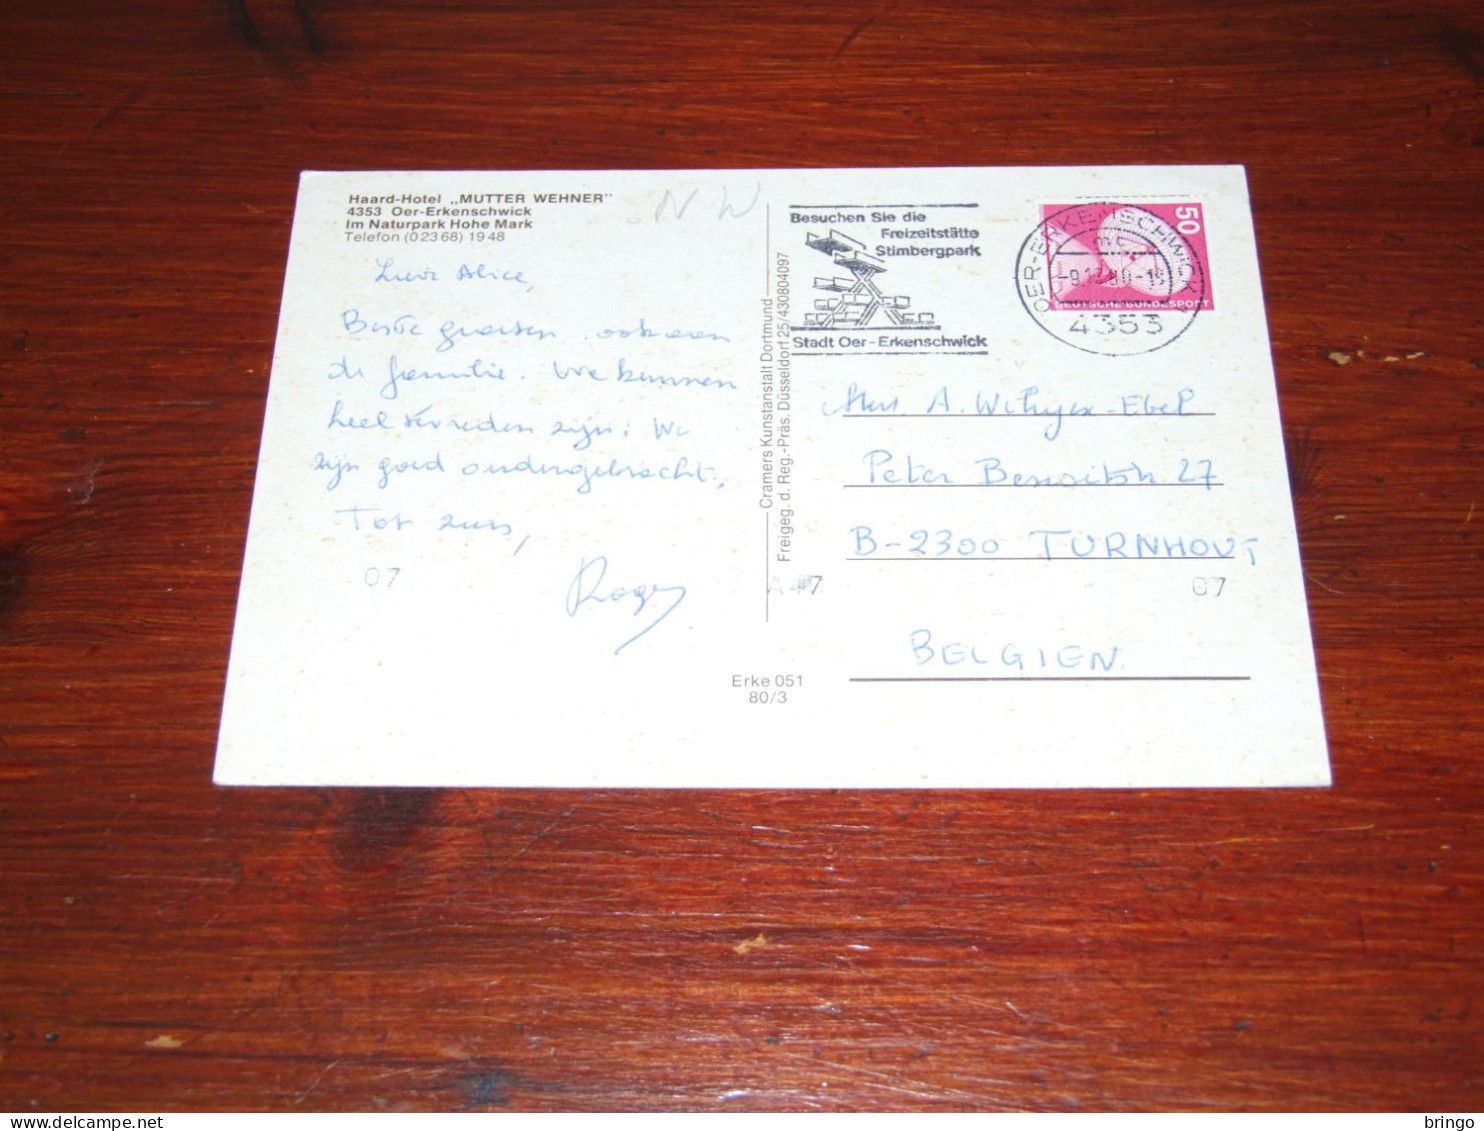 Haard-Hotel „MUTTER WEHNER"
4353 Oer-Erkenschwick
Im Naturpark Hohe Mark
Telefon (0 23 68) 19 48
N W
Alice,
Beste groeten ook aan
de familie. We kunnen
heel tevreden zijn: We
zijn goed ondergebracht.
Tot ziens,
Roger
07
Cramers Kunstanstalt Dortmund
Freigeg. d. Reg.-Präs. Düsseldorf 25/430804097
Erke 051
80/3
Besuchen Sie die
Freizeitstätte
Stimbergpark
Stadt Oer-Erkenschwick
OER-ERKENSCHWICK
4353
50
DEUTSCHE BUNDESPOST
A.
Peter 27
B-2300 TURNHOUT
07
BELGIEN
bringo